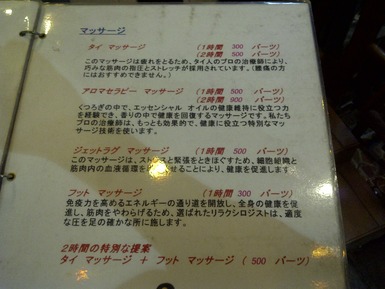 マッサージ
タイ マッサージ (1時間 300 バーツ)
(2時間 500 バーツ)
このマッサージは疲れをとるため、タイ人のプロの治療師により、
巧みな筋肉の指圧とストレッチが採用されています。(腰痛の方
にはおすすめできません。)
アロマセラピー マッサージ (1時間 500 バーツ)
(2時間 900 バーツ)
くつろぎの中で、エッセンシャル オイルの健康維持に役立つ力
を経験でき、香りの中で健康を回復するマッサージです。私たち
プロの治療師は、もっとも効果的で、健康に役立つ特別なマッ
サージ技術を使います。
ジェットラグ マッサージ (1時間 500 バーツ)
このマッサージは、ストレスと緊張をときほぐすため、細胞組織と
筋肉内の血液循環を させることにより、健康を促進します
フット マッサージ (1時間 300 バーツ)
免疫力を高めるエネルギーの通り道を開放し、全身の健康を促
進し、筋肉をやわらげるため、選ばれたリラクシロジストは、適度
な圧を足の確かな所に施します。
2時間の特別な提案
タイ マッサージ + フット マッサージ ( 500 バーツ)